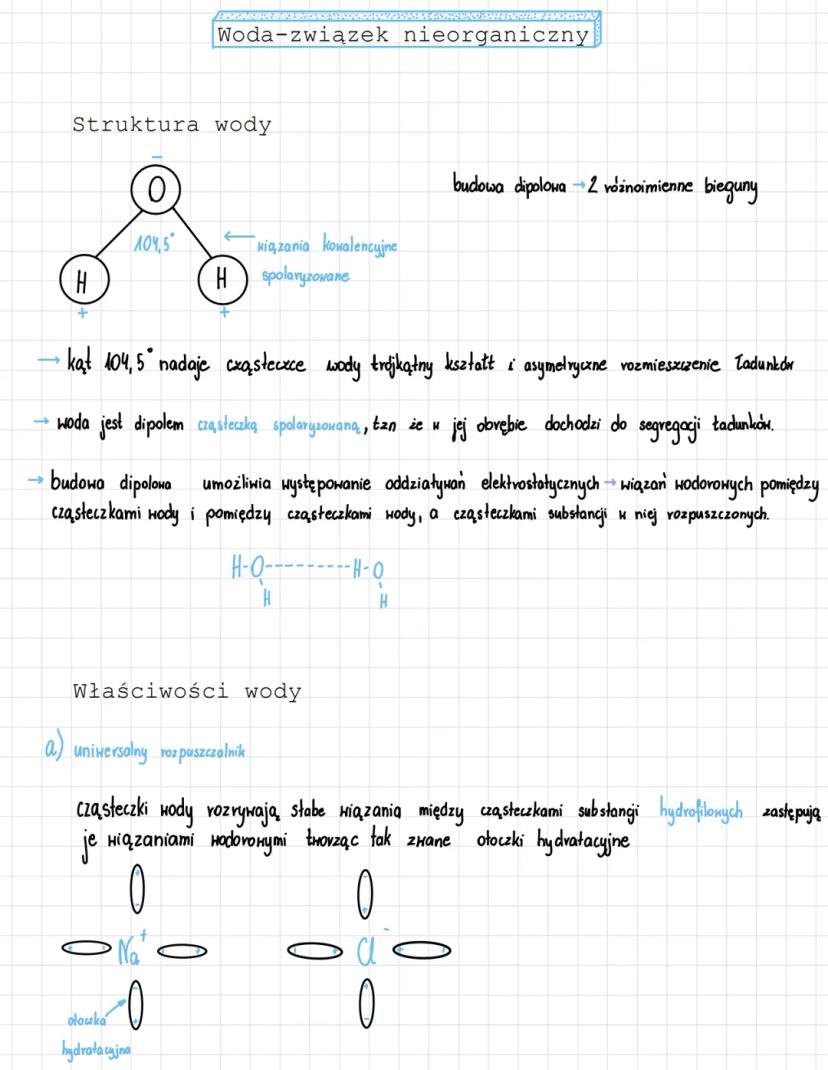 Woda-związek nieorganiczny
Struktura wody
−
O
budowa dipolowa → 2 różnoimienne bieguny
104,5°
← wiązania kowalencyjne
spolaryzowane
H
H
+
+
→ kąt 104,5° nadaje cząsteczce wody trójkątny kształt i asymetryczne rozmieszczenie ładunków
→ woda jest dipolem cząsteczką spolaryzowaną, tzn że w jej obrębie dochodzi do segregacji ładunków.
→ budowa dipolowa umożliwia występowanie oddziaływań elektrostatycznych → wiązań wodorowych pomiędzy
cząsteczkami wody i pomiędzy cząsteczkami wody, a cząsteczkami substancji w niej rozpuszczonych.
H-O----------H-O
H
H
Właściwości wody
a) uniwersalny rozpuszczalnik
cząsteczki wody rozrywają słabe wiązania między cząsteczkami substancji hydrofilowych zastępują
je wiązaniami wodorowymi tworząc tak zwane otoczki hydratacyjne
Na+
Cl-
otoczka
hydratacyjna